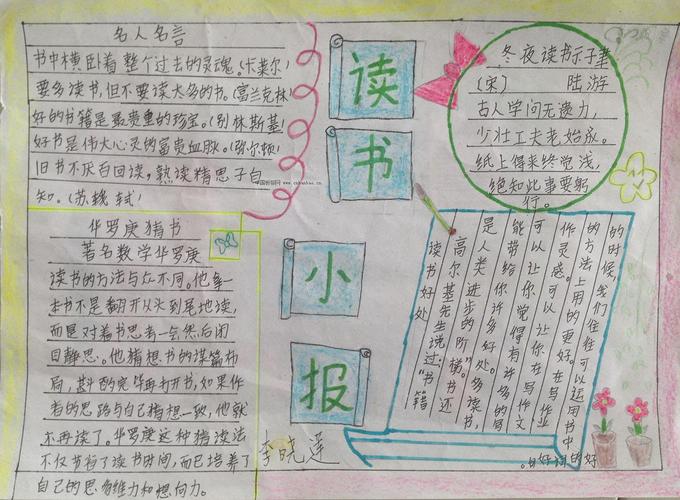 名人名言
书中横卧着整个过去的灵魂。(卡莱尔)
要多读书,但不要读太多的书。(富兰克林)
好的书籍是最贵重的珍宝。(别林斯基)
好书是伟大心灵的富贵血脉。(弥尔顿)
旧书不厌百回读,熟读精思子自
知。(苏轼)
华罗庚猜书
著名数学华罗庚
读书的方法与众不同。他拿一
本书不是翻开从头到尾地读,
而是对着书思考一会,然后闭
目静思。他猜想书的谋篇布
局,斟酌完毕再打开书,如果作
者的思路与自己猜想一致,他就
不再读了。华罗庚这种猜读法
不仅节省了读书时间,而已培养了
自己的思多维力和想向力。
读
书
小
报
李晓莲
冬夜读书示子聿
(宋) 陆游
古人学问无遗力,
少壮工夫老始成。
纸上得来终觉浅,
绝知此事要躬
行。
读书好处
高尔基先生说过:“书籍
是人类进步的阶梯。”书还
能带给你许多好处。多读书,
可以让你觉得有许多的写
作灵感。可以让你在写作文
的方法上用的更好。在写作业
的时候,我们往往可以运用书中
的好词好句。